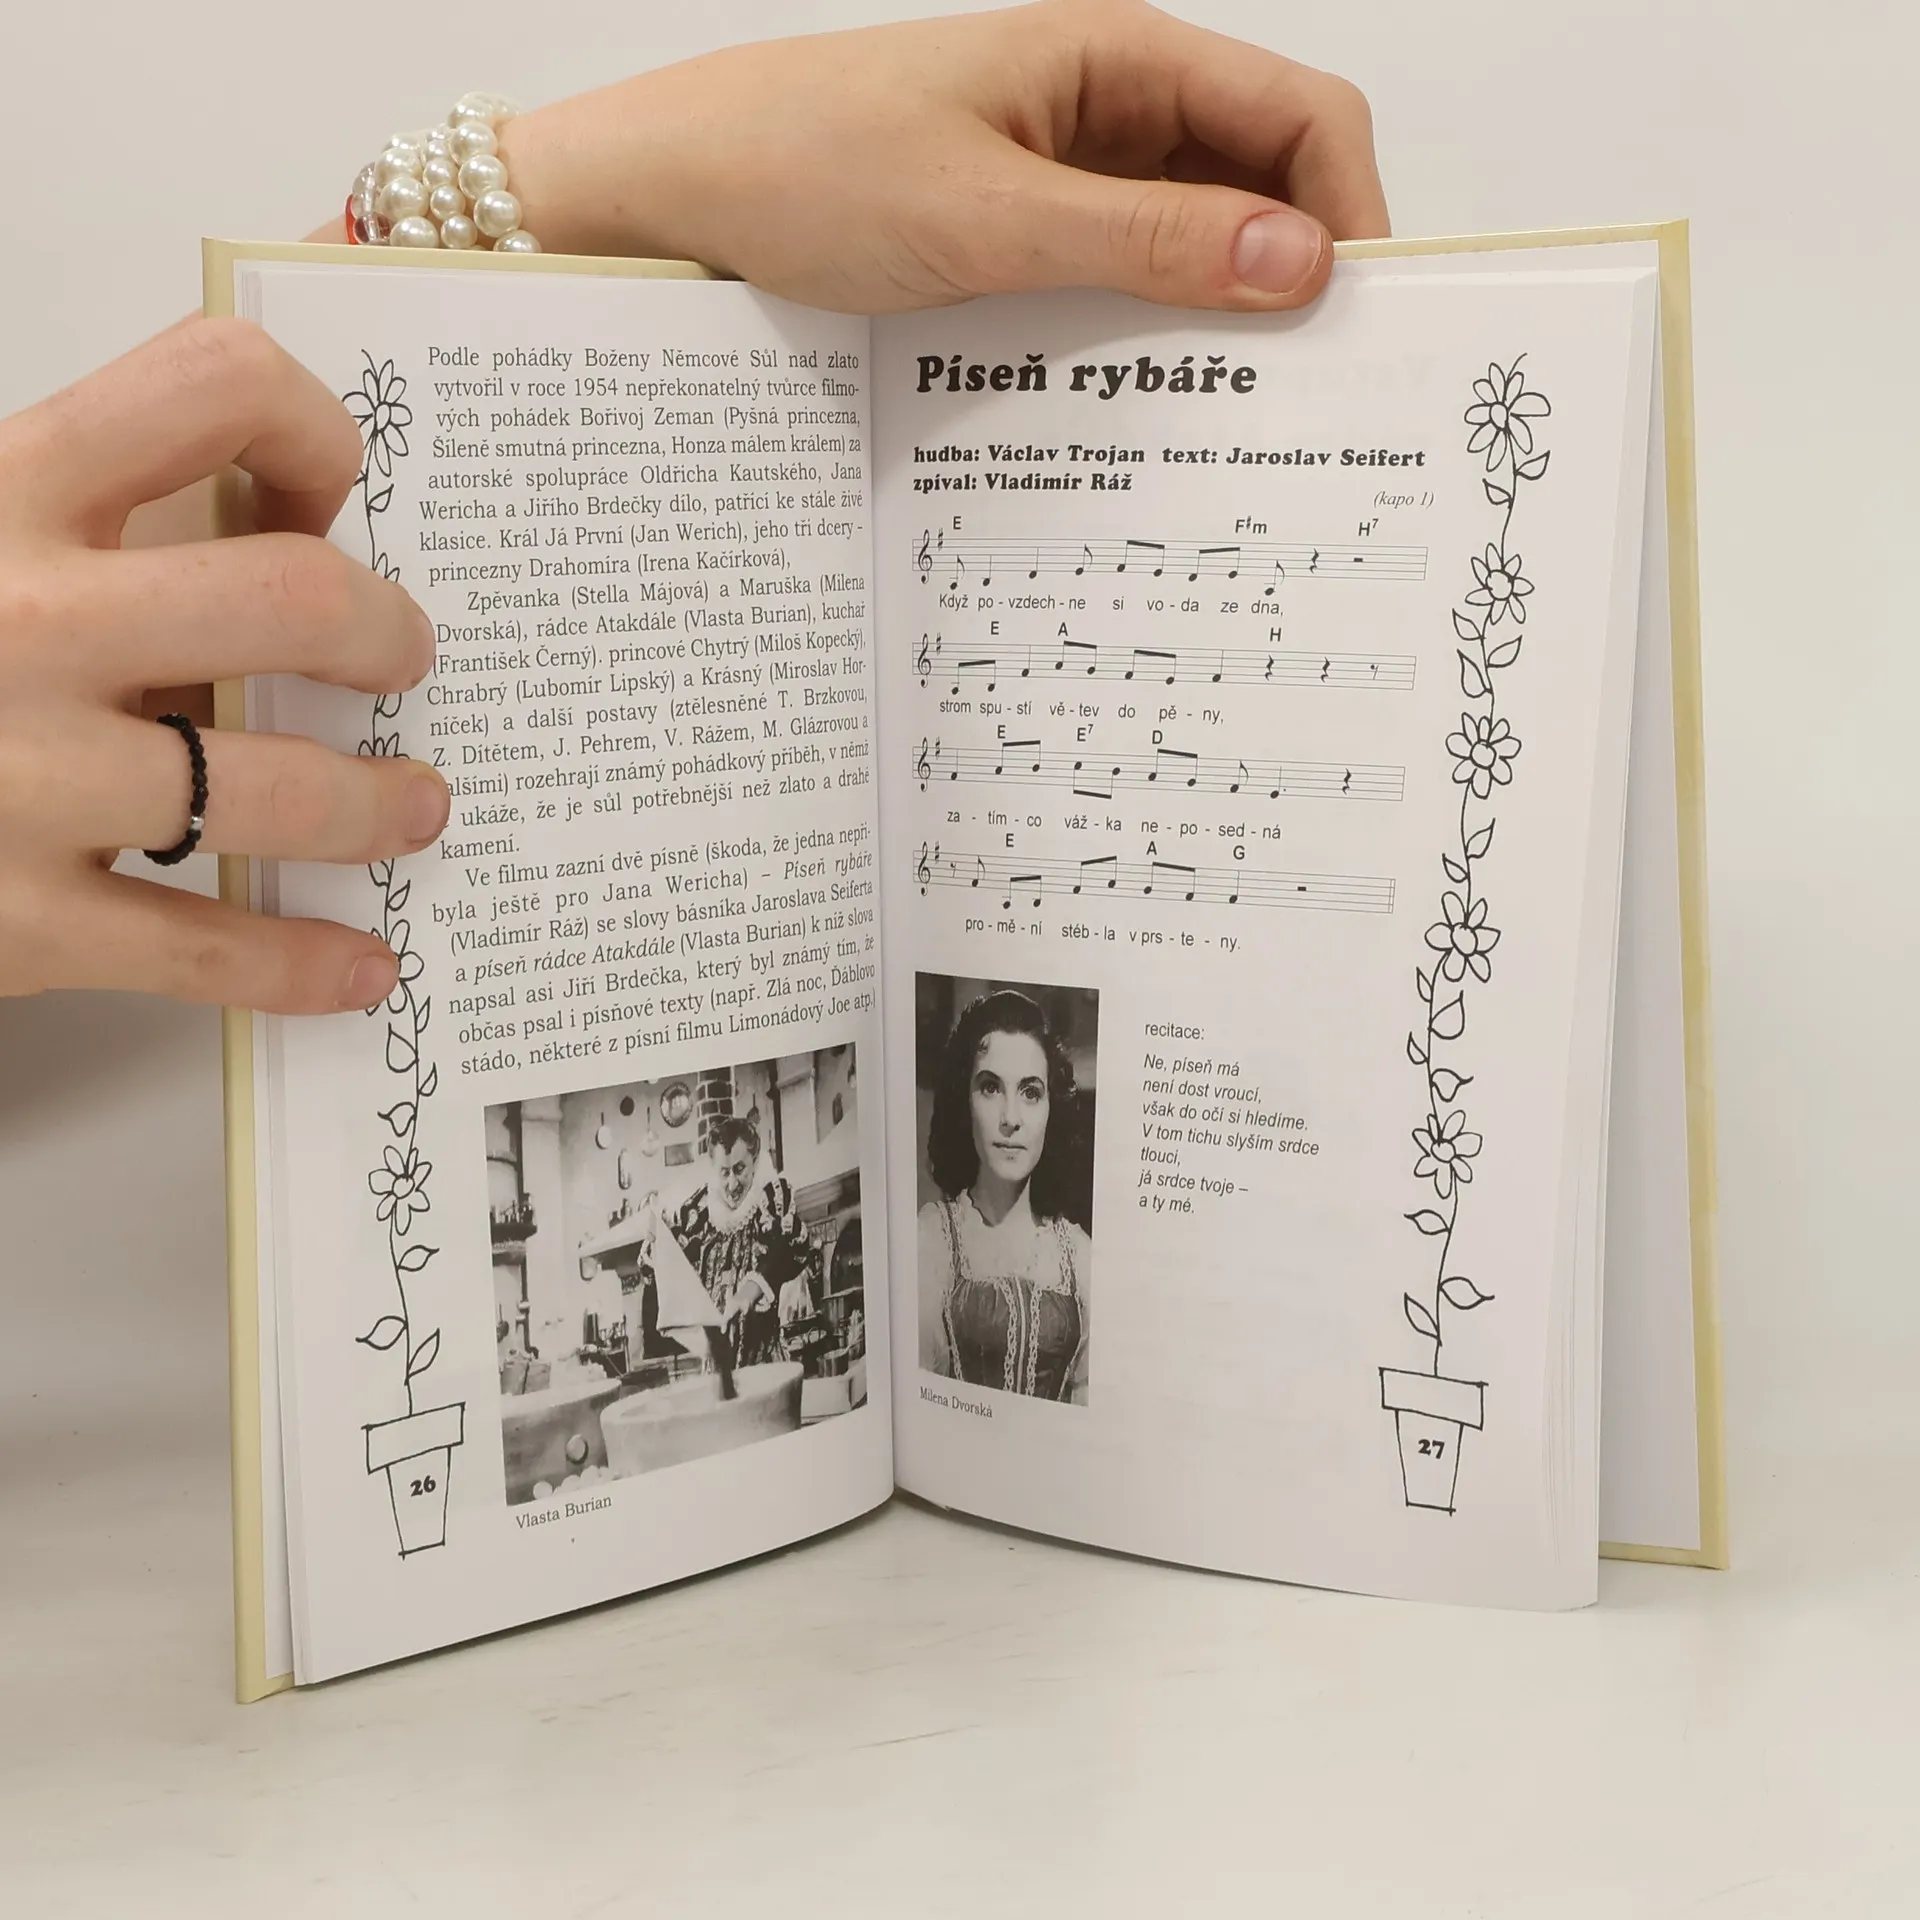 Podle pohádky Boženy Němcové Sůl nad zlato
vytvořil v roce 1954 nepřekonatelný tvůrce filmo-
vých pohádek Bořivoj Zeman (Pyšná princezna,
Šíleně smutná princezna, Honza málem králem) za
autorské spolupráce Oldřicha Kautského, Jana
Wericha a Jiřího Brdečky dílo, patřící ke stále živé
klasice. Král Já První (Jan Werich), jeho tři dcery -
princezny Drahomíra (Irena Kačírková),
Zpěvanka (Stella Májová) a Maruška (Milena
Dvorská), rádce Atakdále (Vlasta Burian), kuchař
(František Černý). princové Chytrý (Miloš Kopecký),
Chrabrý (Lubomír Lipský) a Krásný (Miroslav Hor-
níček) a další postavy (ztělesněné T. Brzkovou,
Z. Dítětem, J. Pehrem, V. Rážem, M. Glázrovou a
alšími) rozehrají známý pohádkový příběh, v němž
ukáže, že je sůl potřebnější než zlato a drahé
kamení.
Ve filmu zazní dvě písně (škoda, že jedna nepři-
byla ještě pro Jana Wericha) – Píseň rybáře
(Vladimír Ráž) se slovy básníka Jaroslava Seiferta
a píseň rádce Atakdále (Vlasta Burian) k níž slova
napsal asi Jiří Brdečka, který byl známý tím, že
občas psal i písňové texty (např. Zlá noc, Ďáblovo
stádo, některé z písní filmu Limonádový Joe atp.)
Vlasta Burian
26
Píseň rybáře
hudba: Václav Trojan text: Jaroslav Seifert
zpíval: Vladimír Ráž
(kapo 1)
E F♯m H7
Když po - vzdech - ne si vo - da ze dna,
E A H
strom spu - stí vě - tev do pě - ny,
E E7 D
za - tím - co váž - ka ne - po - sed - ná
E A G
pro - mě - ní stéb - la v prs - te - ny.
recitace:
Ne, píseň má
není dost vroucí,
však do očí si hledíme.
V tom tichu slyším srdce
tlouci,
já srdce tvoje –
a ty mé.
Milena Dvorská
27